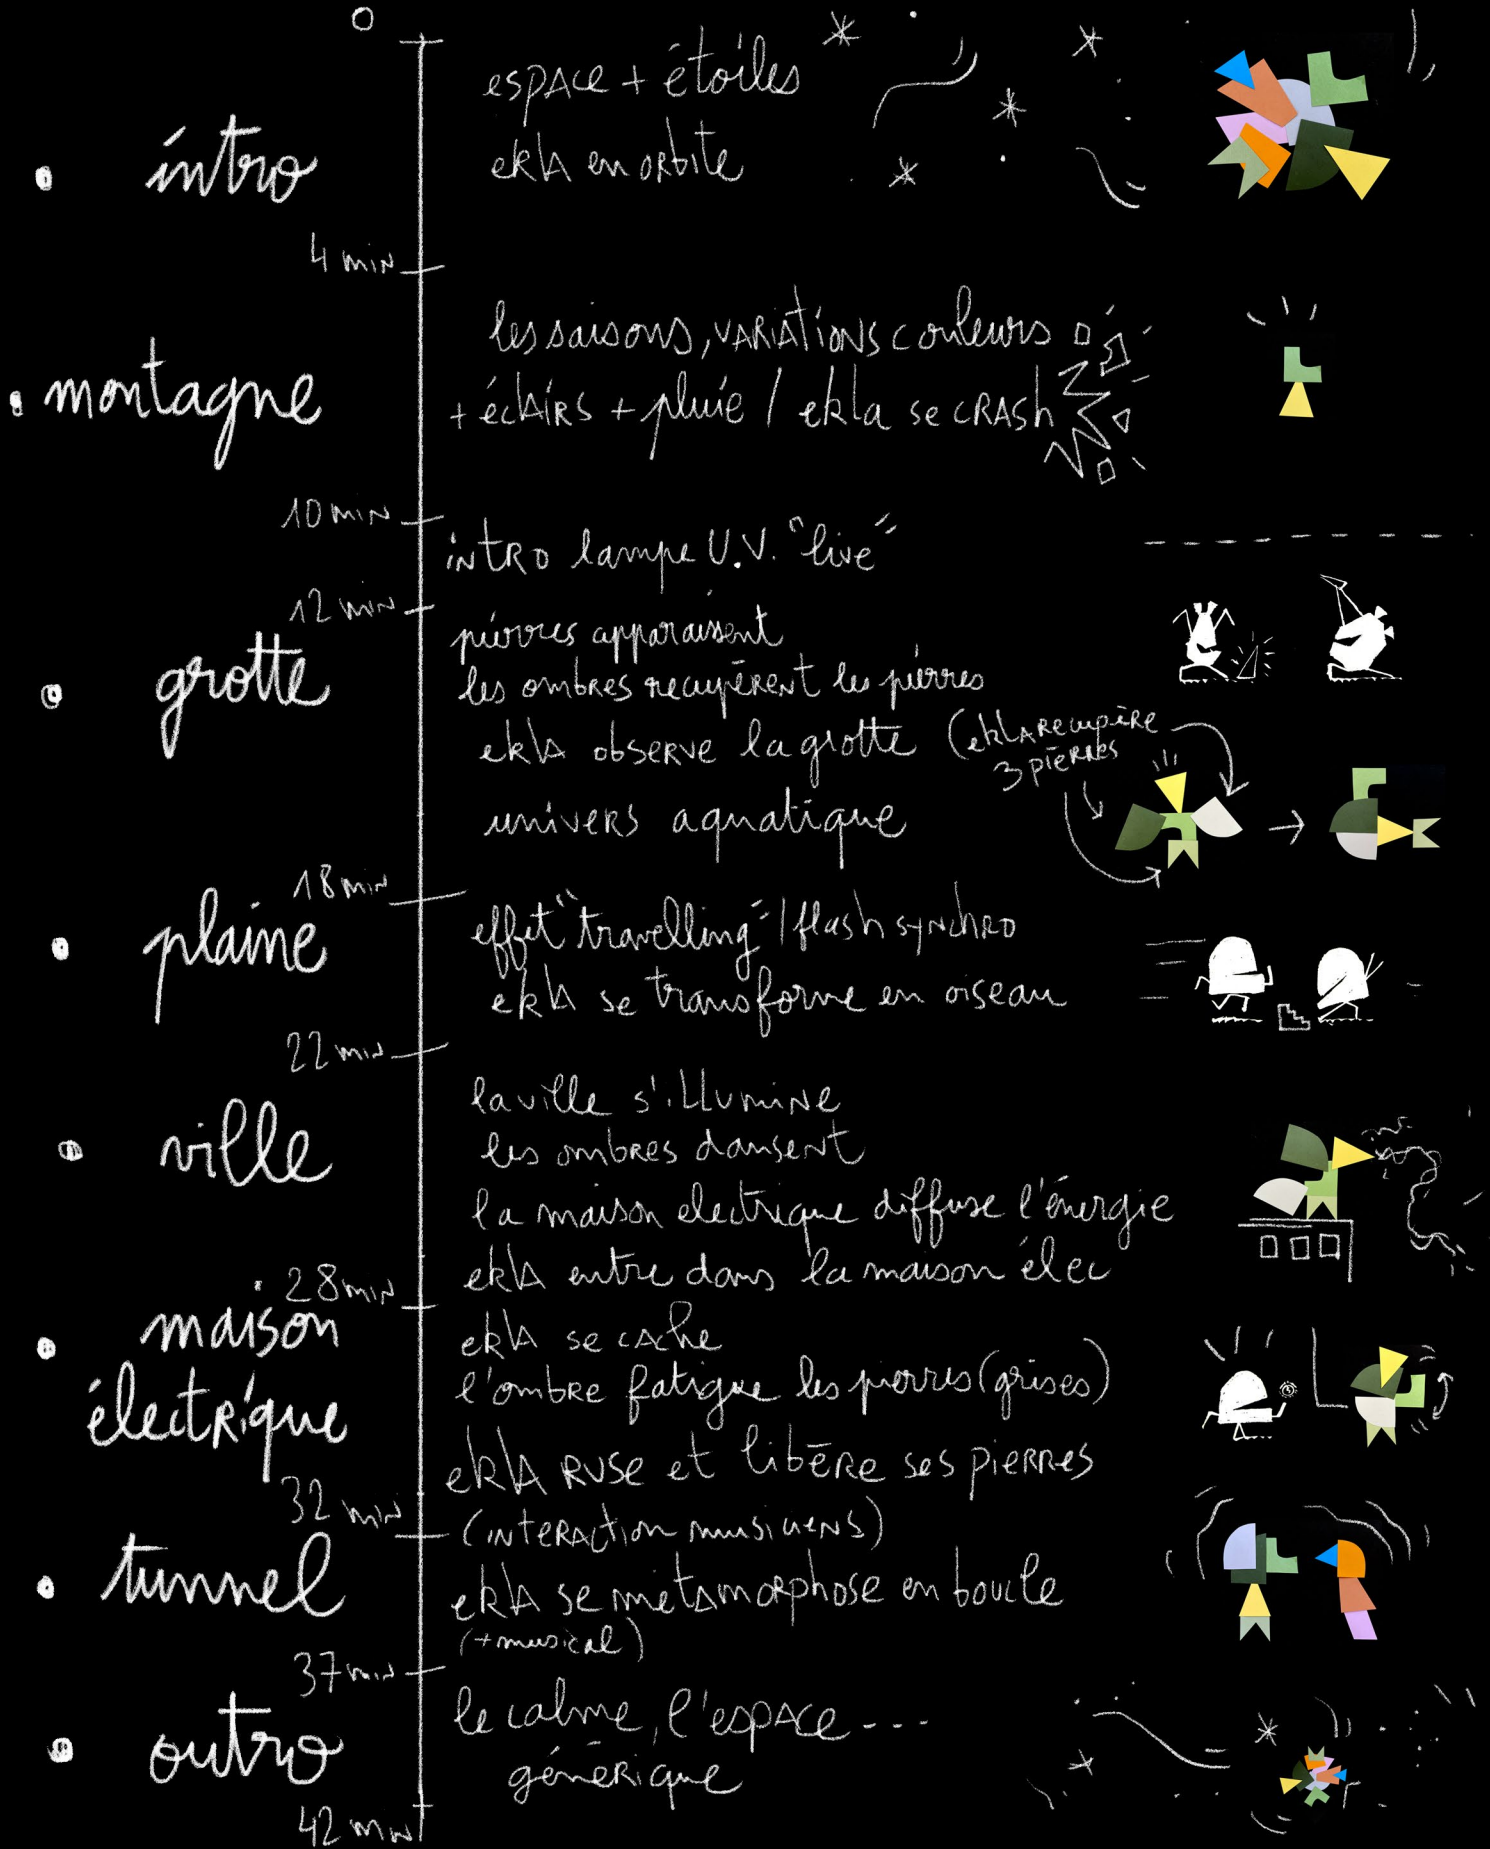 0
espace + étoiles
intro
ekla en orbite
4 min
les saisons, variations couleurs
montagne
+ éclairs + pluie / ekla se crash
10 min
intro lampe U.V. "live"
12 min
pierres apparaissent
grotte
les ombres récupèrent les pierres
ekla observe la grotte (ekla recupère
3 pierres
univers aquatique
18 min
plaine
effet "travelling" / flash synchro
ekla se transforme en oiseau
22 min
la ville s'illumine
ville
les ombres dansent
la maison electrique diffuse l'énergie
ekla entre dans la maison élec
28 min
maison
électrique
ekla se cache
l'ombre fatigue les pierres (grises)
ekla ruse et libère ses pierres
32 min
(interaction musiciens)
tunnel
ekla se métamorphose en boucle
(+ musical)
37 min
le calme, l'espace ---
outro
générique
42 min